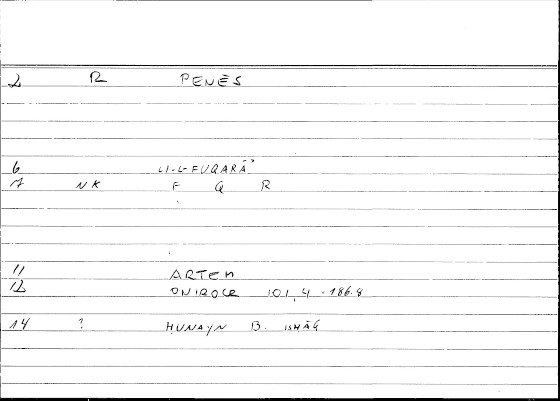 2 R PENĒS
6 LI-L-FUQARĀʾ
7 NK F Q R
11 ARTEM
12 ONIROCR 101,4-186.8
14 ? ḤUNAYN B. ISḤĀQ